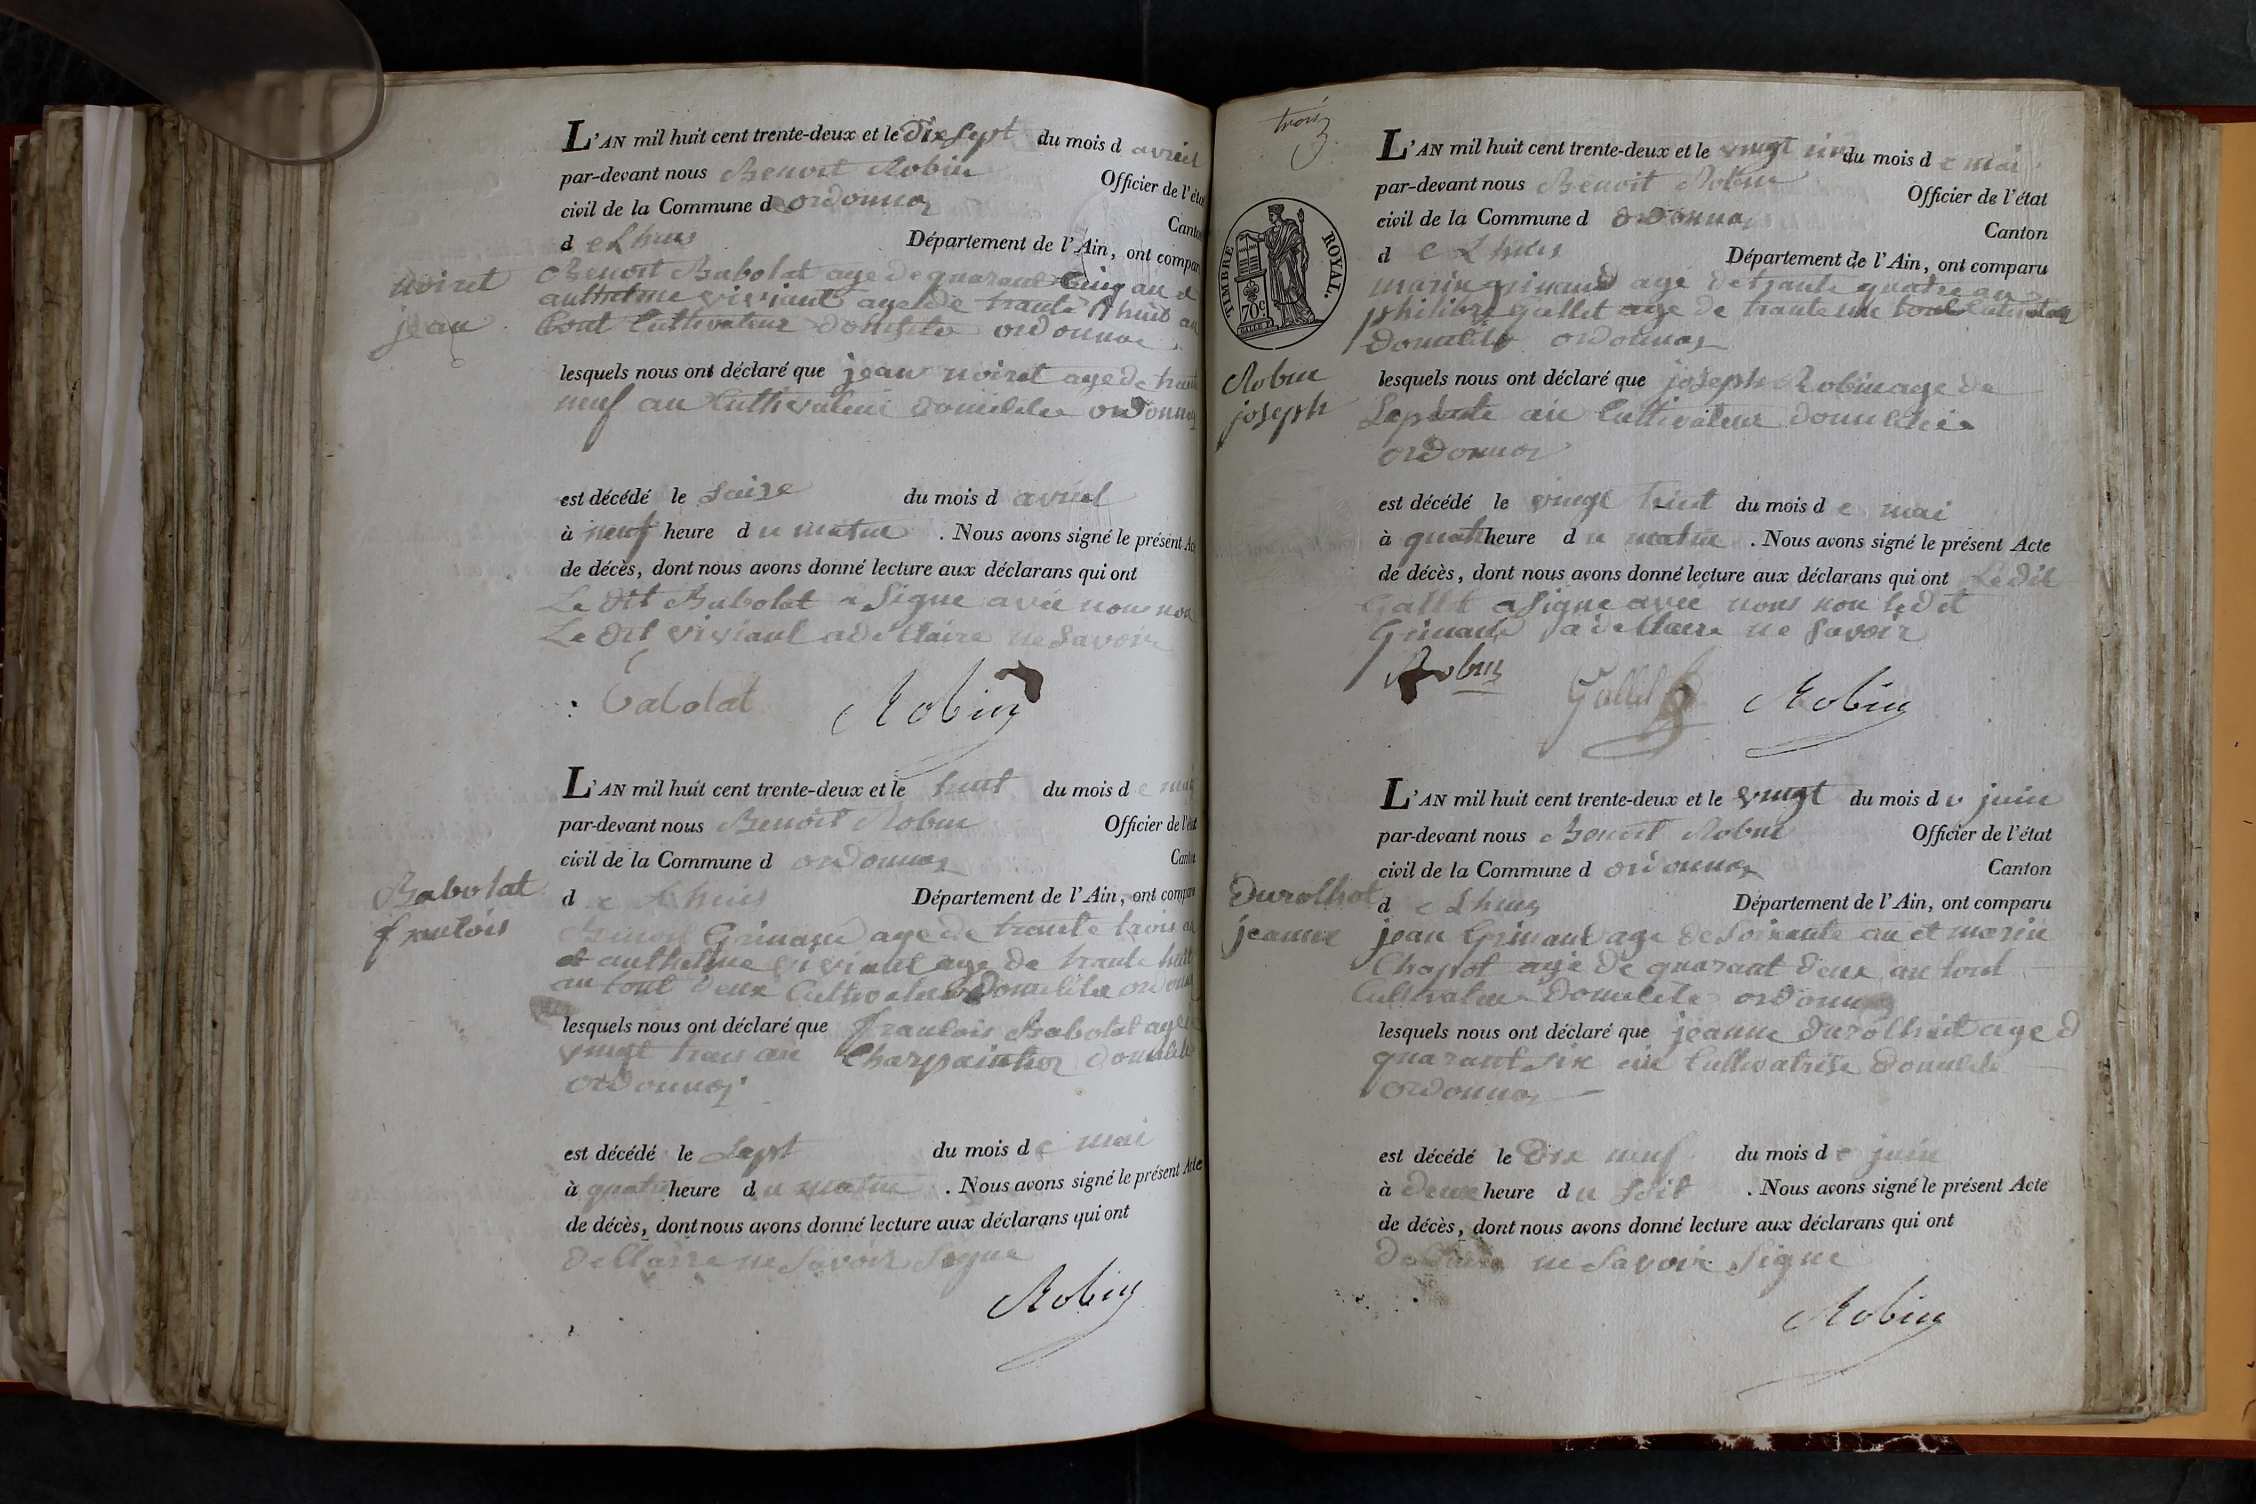 L'AN mil huit cent trente-deux et le Dix sept du mois d avriel
par-devant nous Benoit Robin Officier de l'état
civil de la Commune d ordonnaz Canton
d e Lhuis Département de l'Ain, ont compar
noiret
jean
Benoit Babolat age de quarant Cinq an e
anthelme viviant age de trante huit an
tout Cultivateur domicile ordonnaz
lesquels nous ont déclaré que jean noiret age de trante
neuf an Cultivateur domicilie ordonnaz
est décédé le saize du mois d avriel
à neuf heure d u matin . Nous avons signé le présent Acte
de décès, dont nous avons donné lecture aux déclarans qui ont
Le dit Babolat a signe avec nous non
Le dit viviant a declaire ne savoir
Babolat Robin
L'AN mil huit cent trente-deux et le huit du mois d e mai
par-devant nous Benoit Robin Officier de l'état
civil de la Commune d ordonnaz Canton
d e Lhuis Département de l'Ain, ont comparu
Babolat
franlois
Benoit Grinand age de trante trois an
et anthelme viviant age de trante huit
an tout deux Cultivateur domicilie ordonnaz
lesquels nous ont déclaré que franlois Babolat age de
vingt trois an Charpaintier domicilie
ordonnaz
est décédé le sept du mois d e mai
à quatre heure d u matin . Nous avons signé le présent Acte
de décès, dont nous avons donné lecture aux déclarans qui ont
declaire ne savoir signe
Robin
trois
3
TIMBRE ROYAL.
70 c.
L'AN mil huit cent trente-deux et le vingt du mois d e mai
par-devant nous Benoit Robin Officier de l'état
civil de la Commune d ordonnaz Canton
d e Lhuis Département de l'Ain, ont comparu
marin grinand agé de trante quatre an
philibert Gallet age de trante un tout Cultivateur
domicilie ordonnaz
Robin
joseph
lesquels nous ont déclaré que joseph Robin age de
Septante an Cultivateur domicilie
ordonnaz
est décédé le vingt du mois d e mai
à quatre heure d u matin . Nous avons signé le présent Acte
de décès, dont nous avons donné lecture aux déclarans qui ont Le dit
Gallet a signe avec nous non le dit
Grinand a declaire ne savoir
Robin Gallet Robin
L'AN mil huit cent trente-deux et le vingt du mois d e juin
par-devant nous Benoit Robin Officier de l'état
civil de la Commune d ordonnaz Canton
d e Lhuis Département de l'Ain, ont comparu
Durolhot
jeanne
jean Grinand age de soixante an et marin
Chapot agé de quarant deux an tout
Cultivateur domicilie ordonnaz
lesquels nous ont déclaré que jeanne durolhot age d
quarant six an Cultivatrise domicilie
ordonnaz
est décédé le Dix neuf du mois d e juin
à deux heure d u soit . Nous avons signé le présent Acte
de décès, dont nous avons donné lecture aux déclarans qui ont
declaire ne savoir signe
Robin